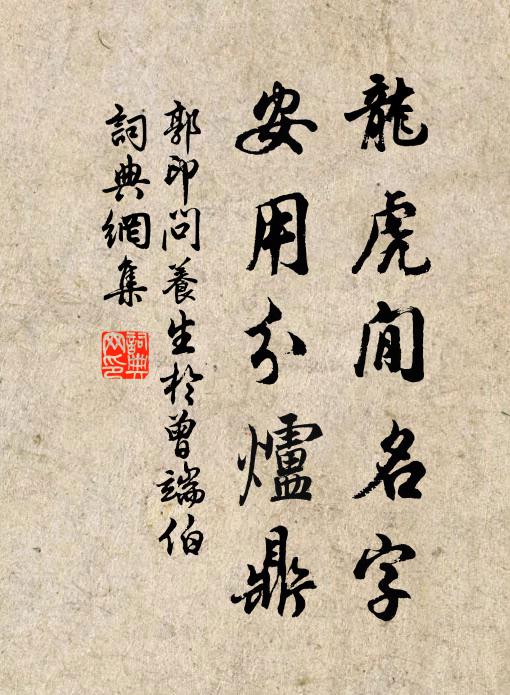 龍虎閒名字
安用分爐鼎
郭印問養生於曾端伯
詞典網集
詞典
网印